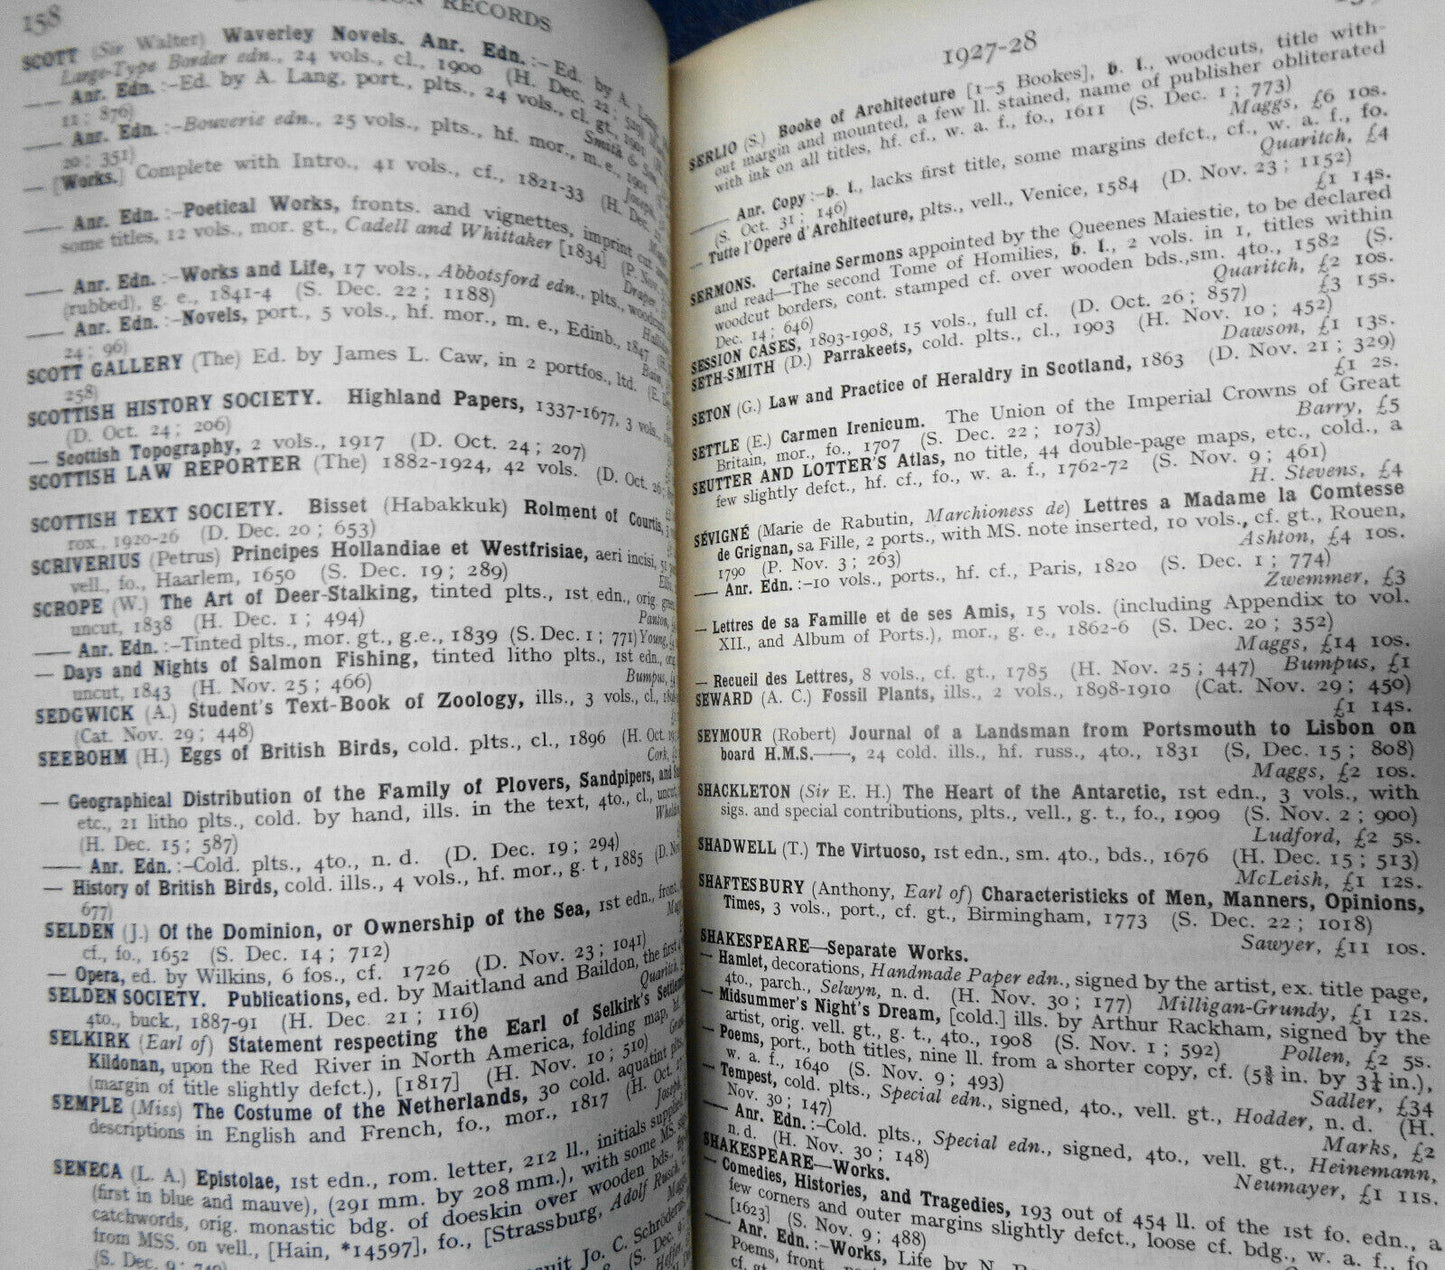 158
RECORDS
SCOTT (Sir Walter) Waverley Novels. Anr. Edn.:—Ed. by A. Lang,
Large-Type Border edn., 24 vols., cl., 1900 (H. Dec. 22; 529)
—— Anr. Edn.:—Ed. by A. Lang, port., plts., 24 vols., cl. gt., 1901
11; 876)
—— Anr. Edn.:—Bouverie edn., 25 vols., plts., hf. mor., m. e., 1901
20; 351)
— [Works.] Complete with Intro., 41 vols., cf., 1821-33 (H. Dec.
—— Anr. Edn.:—Poetical Works, fronts. and vignettes, imprint cut
some titles, 12 vols., mor. gt., Cadell and Whittaker [1834] (P. Nov.
—— Anr. Edn.:—Works and Life, 17 vols., Abbotsford edn., plts., woodcuts
(rubbed), g. e., 1841-4 (S. Dec. 22; 1188)
—— Anr. Edn.:—Novels, port., 5 vols., hf. mor., m. e., Edinb., 1847 (H.
24; 96)
SCOTT GALLERY (The) Ed. by James L. Caw, in 2 portfos., ltd. (E.
258)
SCOTTISH HISTORY SOCIETY. Highland Papers, 1337-1677, 3 vols.,
(D. Oct. 24; 206)
— Scottish Topography, 2 vols., 1917 (D. Oct. 24; 207)
SCOTTISH LAW REPORTER (The) 1882-1924, 42 vols. (D. Oct. 26;
SCOTTISH TEXT SOCIETY. Bisset (Habakkuk) Rolment of Courtis,
rox., 1920-26 (D. Dec. 20; 653)
SCRIVERIUS (Petrus) Principes Hollandiae et Westfrisiae, aeri incisi,
vell., fo., Haarlem, 1650 (S. Dec. 19; 289)
SCROPE (W.) The Art of Deer-Stalking, tinted plts., 1st edn., orig. green
uncut, 1838 (H. Dec. 1; 494) Panton,
—— Anr. Edn.:—Tinted plts., mor. gt., g.e., 1839 (S. Dec. 1; 771) Young,
— Days and Nights of Salmon Fishing, tinted litho plts., 1st edn., orig.
uncut, 1843 (H. Nov. 25; 466) Bumpus,
SEDGWICK (A.) Student's Text-Book of Zoology, ills., 3 vols., cl.,
(Cat. Nov. 29; 448)
SEEBOHM (H.) Eggs of British Birds, cold. plts., cl., 1896 (H. Oct.
Cork,
— Geographical Distribution of the Family of Plovers, Sandpipers, and
etc., 21 litho plts., cold. by hand, ills. in the text, 4to., cl., uncut,
(H. Dec. 15; 587)
—— Anr. Edn.:—Cold. plts., 4to., n. d. (D. Dec. 19; 294)
— History of British Birds, cold. ills., 4 vols., hf. mor., g. t, 1885 (D. Nov.
677)
SELDEN (J.) Of the Dominion, or Ownership of the Sea, 1st edn., front.,
cf., fo., 1652 (S. Dec. 14; 712)
— Opera, ed. by Wilkins, 6 fos., cf. 1726 (D. Nov. 23; 1041)
SELDEN SOCIETY. Publications, ed. by Maitland and Baildon, the first
4to., buck., 1887-91 (H. Dec. 21; 116) Quaritch,
SELKIRK (Earl of) Statement respecting the Earl of Selkirk's Settlement
Kildonan, upon the Red River in North America, folding map, hf.
(margin of title slightly defct.), [1817] (H. Nov. 10; 510)
SEMPLE (Miss) The Costume of the Netherlands, 30 cold. aquatint plts.,
descriptions in English and French, fo., mor., 1817 (H. Oct.
Joseph,
SENECA (L. A.) Epistolae, 1st edn., rom. letter, 212 ll., initials supplied
(first in blue and mauve), (291 mm. by 208 mm.), with some MS.
catchwords, orig. monastic bdg. of doeskin over wooden bds.,
from MSS. on vell., [Hain, *14597], fo., [Strassburg, Adolf Rusch,
(S. Dec. 9;
Jo. C. Schröder
1927-28
SERLIO (S.) Booke of Architecture [1-5 Bookes], b. l., woodcuts, title with-
out margin and mounted, a few ll. stained, name of publisher obliterated
with ink on all titles, hf. cf., w. a. f., fo., 1611 (S. Dec. 1; 773)
Maggs, £6 10s.
—— Anr. Copy:—b. l., lacks first title, some margins defct., cf., w. a. f., fo.
(S. Oct. 31; 146) Quaritch, £4
— Tutte l'Opere d'Architecture, plts., vell., Venice, 1584 (D. Nov. 23; 1152)
£1 14s.
SERMONS. Certaine Sermons appointed by the Queenes Maiestie, to be declared
and read—The second Tome of Homilies, b. l., 2 vols. in 1, titles within
woodcut borders, cont. stamped cf. over wooden bds., sm. 4to., 1582 (S.
Dec. 14; 646) Quaritch, £2 10s.
SESSION CASES, 1893-1908, 15 vols., full cf. (D. Oct. 26; 857) £3 15s.
SETH-SMITH (D.) Parrakeets, cold. plts., cl., 1903 (H. Nov. 10; 452)
Dawson, £1 13s.
SETON (G.) Law and Practice of Heraldry in Scotland, 1863 (D. Nov. 21; 329)
£1 2s.
SETTLE (E.) Carmen Irenicum. The Union of the Imperial Crowns of Great
Britain, mor., fo., 1707 (S. Dec. 22; 1073) Barry, £5
SEUTTER AND LOTTER'S Atlas, no title, 44 double-page maps, etc., cold., a
few slightly defct., hf. cf., fo., w. a. f., 1762-72 (S. Nov. 9; 461)
H. Stevens, £4
SÉVIGNÉ (Marie de Rabutin, Marchioness de) Lettres a Madame la Comtesse
de Grignan, sa Fille, 2 ports., with MS. note inserted, 10 vols., cf. gt., Rouen,
1790 (P. Nov. 3; 263) Ashton, £4 10s.
—— Anr. Edn.:—10 vols., ports., hf. cf., Paris, 1820 (S. Dec. 1; 774)
Zwemmer, £3
— Lettres de sa Famille et de ses Amis, 15 vols. (including Appendix to vol.
XII., and Album of Ports.), mor., g. e., 1862-6 (S. Dec. 20; 352)
Maggs, £14 10s.
— Recueil des Lettres, 8 vols., cf. gt., 1785 (H. Nov. 25; 447) Bumpus, £1
SEWARD (A. C.) Fossil Plants, ills., 2 vols., 1898-1910 (Cat. Nov. 29; 450)
£1 14s.
SEYMOUR (Robert) Journal of a Landsman from Portsmouth to Lisbon on
board H.M.S.——, 24 cold. ills., hf. russ., 4to., 1831 (S, Dec. 15; 808)
Maggs, £2 10s.
SHACKLETON (Sir E. H.) The Heart of the Antarctic, 1st edn., 3 vols., with
sigs. and special contributions, plts., vell., g. t., fo., 1909 (S. Nov. 2; 900)
Ludford, £2 5s.
SHADWELL (T.) The Virtuoso, 1st edn., sm. 4to., bds., 1676 (H. Dec. 15; 513)
McLeish, £1 12s.
SHAFTESBURY (Anthony, Earl of) Characteristicks of Men, Manners, Opinions,
Times, 3 vols., port., cf. gt., Birmingham, 1773 (S. Dec. 22; 1018)
Sawyer, £11 10s.
SHAKESPEARE—Separate Works.
— Hamlet, decorations, Handmade Paper edn., signed by the artist, ex. title page,
4to., parch., Selwyn, n. d. (H. Nov. 30; 177) Milligan-Grundy, £1 12s.
— Midsummer's Night's Dream, [cold.] ills. by Arthur Rackham, signed by the
artist, orig. vell. gt., g. t., 4to., 1908 (S. Nov. 1; 592) Pollen, £2 5s.
— Poems, port., both titles, nine ll. from a shorter copy, cf. (5⅜ in. by 3¼ in.),
w. a. f., 1640 (S. Nov. 9; 493) Sadler, £34
— Tempest, cold. plts., Special edn., signed, 4to., vell. gt., Hodder, n. d. (H.
Nov. 30; 147) Marks, £2
—— Anr. Edn.:—Cold. plts., Special edn., signed, 4to., vell. gt., Heinemann,
n. d. (H. Nov. 30; 148) Neumayer, £1 11s.
SHAKESPEARE—Works.
— Comedies, Histories, and Tragedies, 193 out of 454 ll. of the 1st fo. edn., a
few corners and outer margins slightly defct., loose cf. bdg., w. a. f., fo.
[1623] (S. Nov. 9; 488)
—— Anr. Edn.:—Works, Life by N.
Poems, front.,
cf. gt.